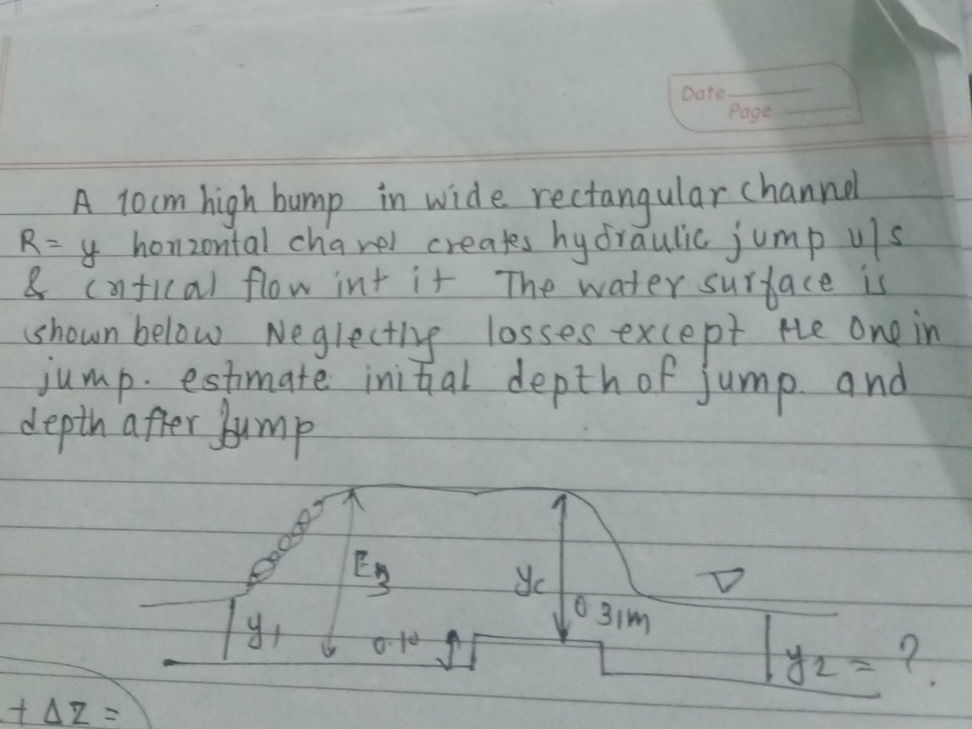 Date
Page
A 10cm high bump in wide rectangular channel
R= y horizontal chanel creates hydraulic jump u/s
& critical flow int it The water surface is
shown below Neglecting losses except the one in
jump. estimate initial depth of jump. and
depth after jump
y1
0.10
yc
0.31m
y2 = ?
+ ΔZ =